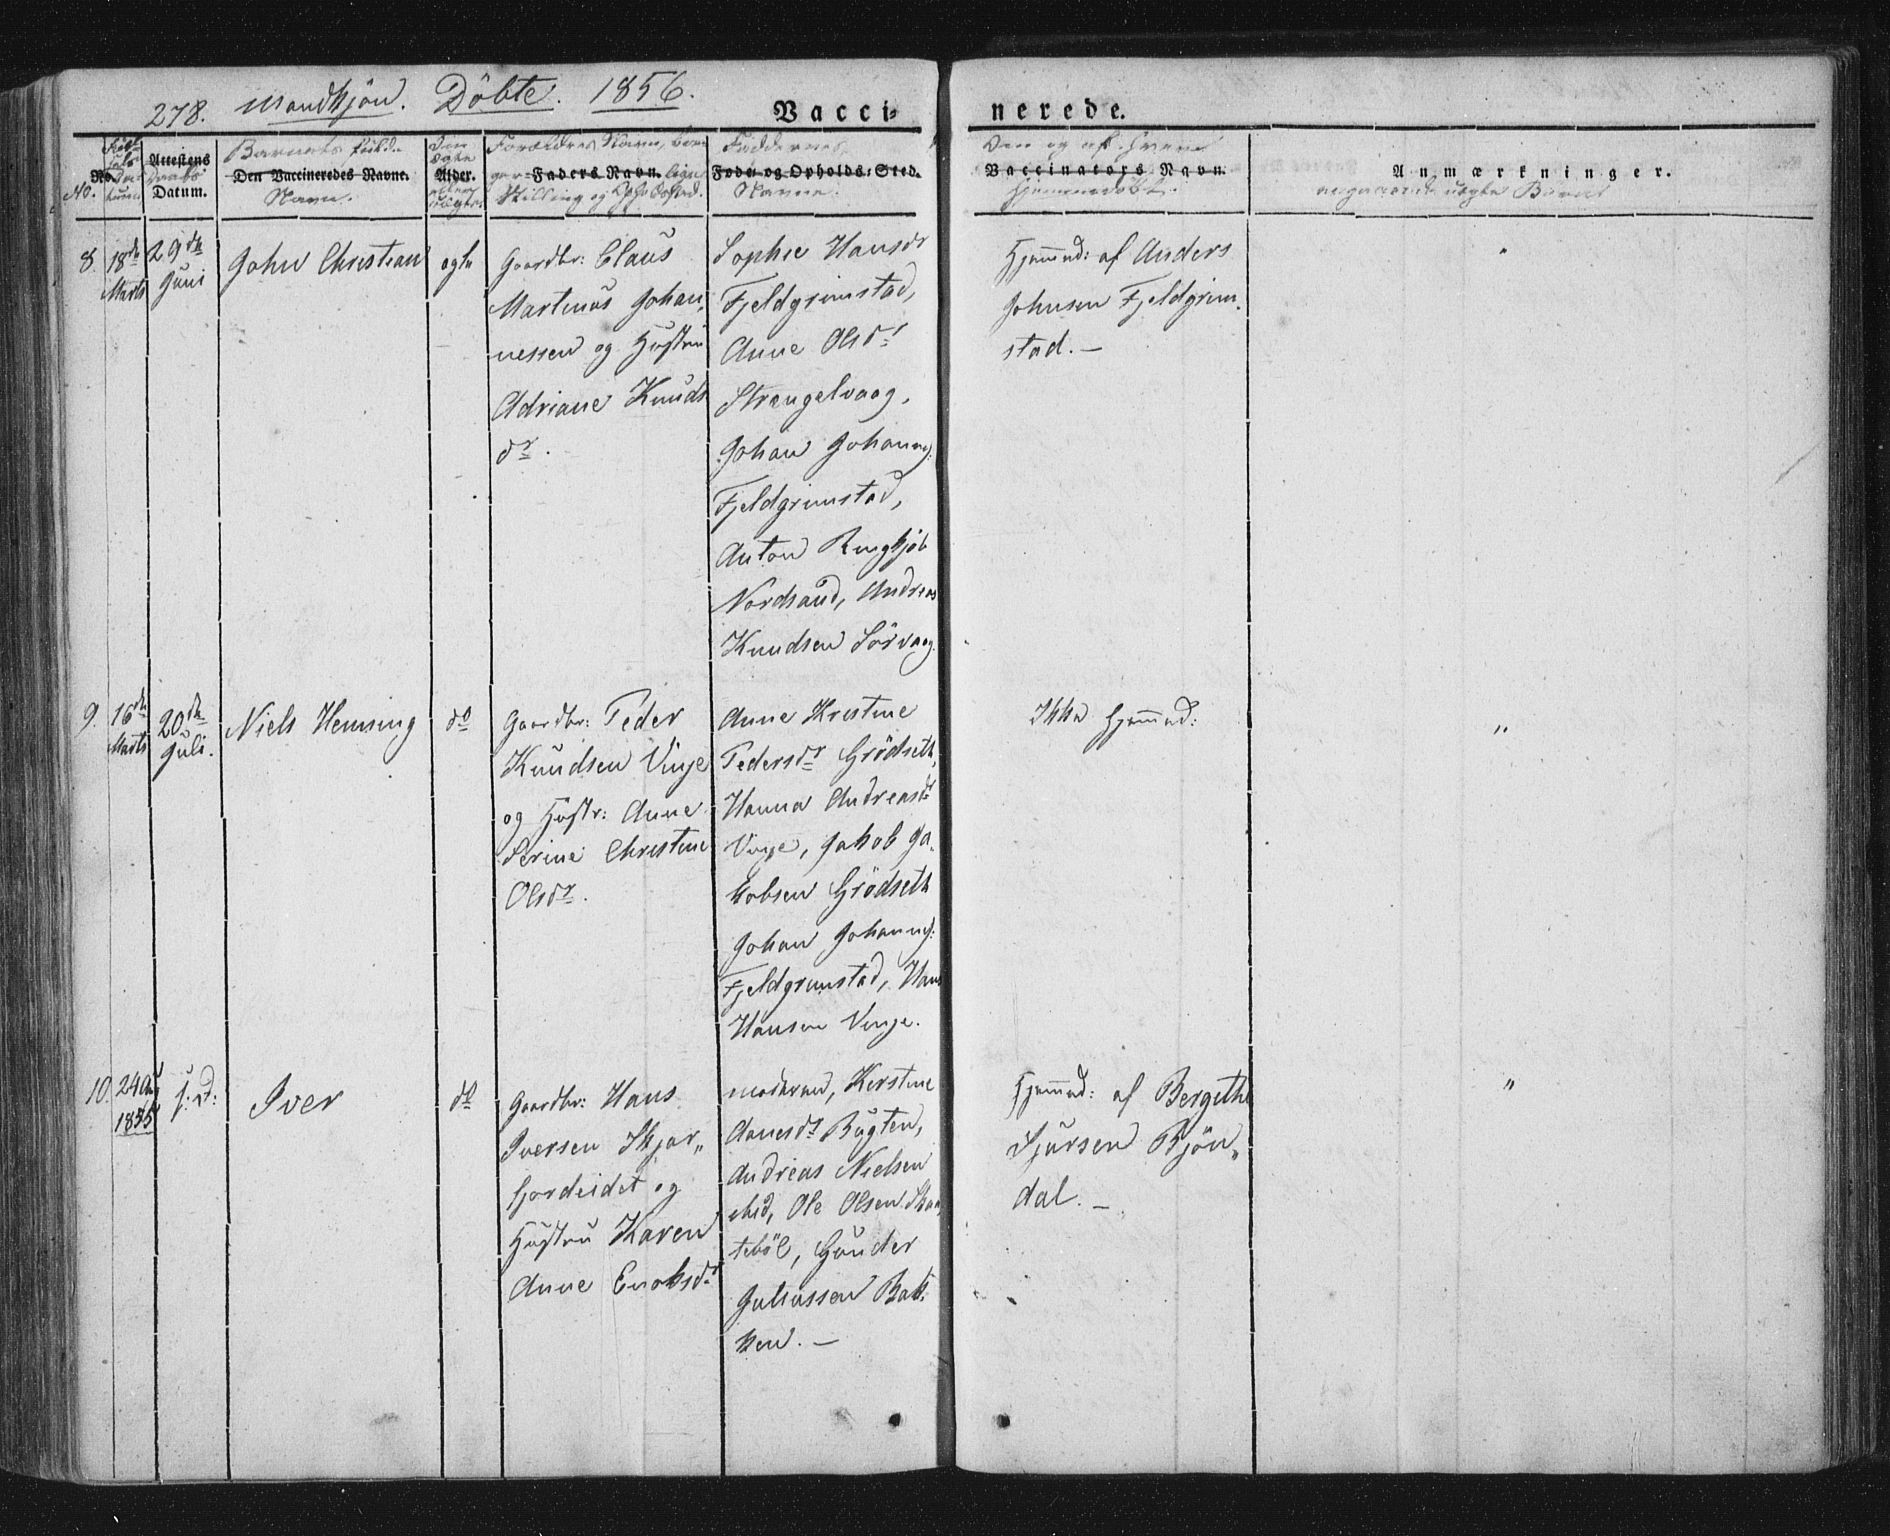 278. Mandkjön. Döbte. 1856.
Vacci- nerede.
No. Attestens Datum.
Barnets fulde Navn.
Den Vaccineredes Navne.
Alder.
Forældres Navn,
Faders Navn.
Stilling og
Faddernes Navne.
Føde- og Opholds-Sted.
Vaccinators Navn.
Hjemmedöbt.
Anmærkninger.
8. 18de Marts
29de Juni
John Christian
ægte
Gaardbr: Claus
Martinus Johan-
nessen og Hustru
Adriane Knuds
dr.
Sophie Hansdr
Fjeldgrimstad,
Anne Olsdr
Strengelvaag,
Johan Johannes:
Fjeldgrimstad,
Anton Ringkjöb
Nordsand, Andreas
Knudsen Sörvaag.
Hjemmed: af Anders
Johnsen Fjeldgrim-
stad. —
"
9. 16de Marts
20de Juli.
Niels Hemming
do
Gaardbr: Peder
Knudsen Vinje
og Hustr: Anne
Serine Christine
Olsdr.
Anne Kristine
Pedersdr Grödseth,
Hanna Andreasdr
Vinje, Jakob Ja-
kobsen Grödseth
Johan Johannes:
Fjeldgrimstad, Hans
Hansen Vinje.
Ikke Hjemmed:
"
10. 24 1855
s: D:
Iver
do
Gaardbr: Hans
Iversen Skjor„
fjordeidet og
Hustru Karen
Anne Enoksdr
moderen, Kerstine
Aanesdr Bugten,
Andreas Nielsen
ibid, Ole Olsen Skaa
teböl, Gunder
Juliussen Bak-
ken. —
Hjemmed: af Bergithe
Sjursen Bjön„
dal. —
"